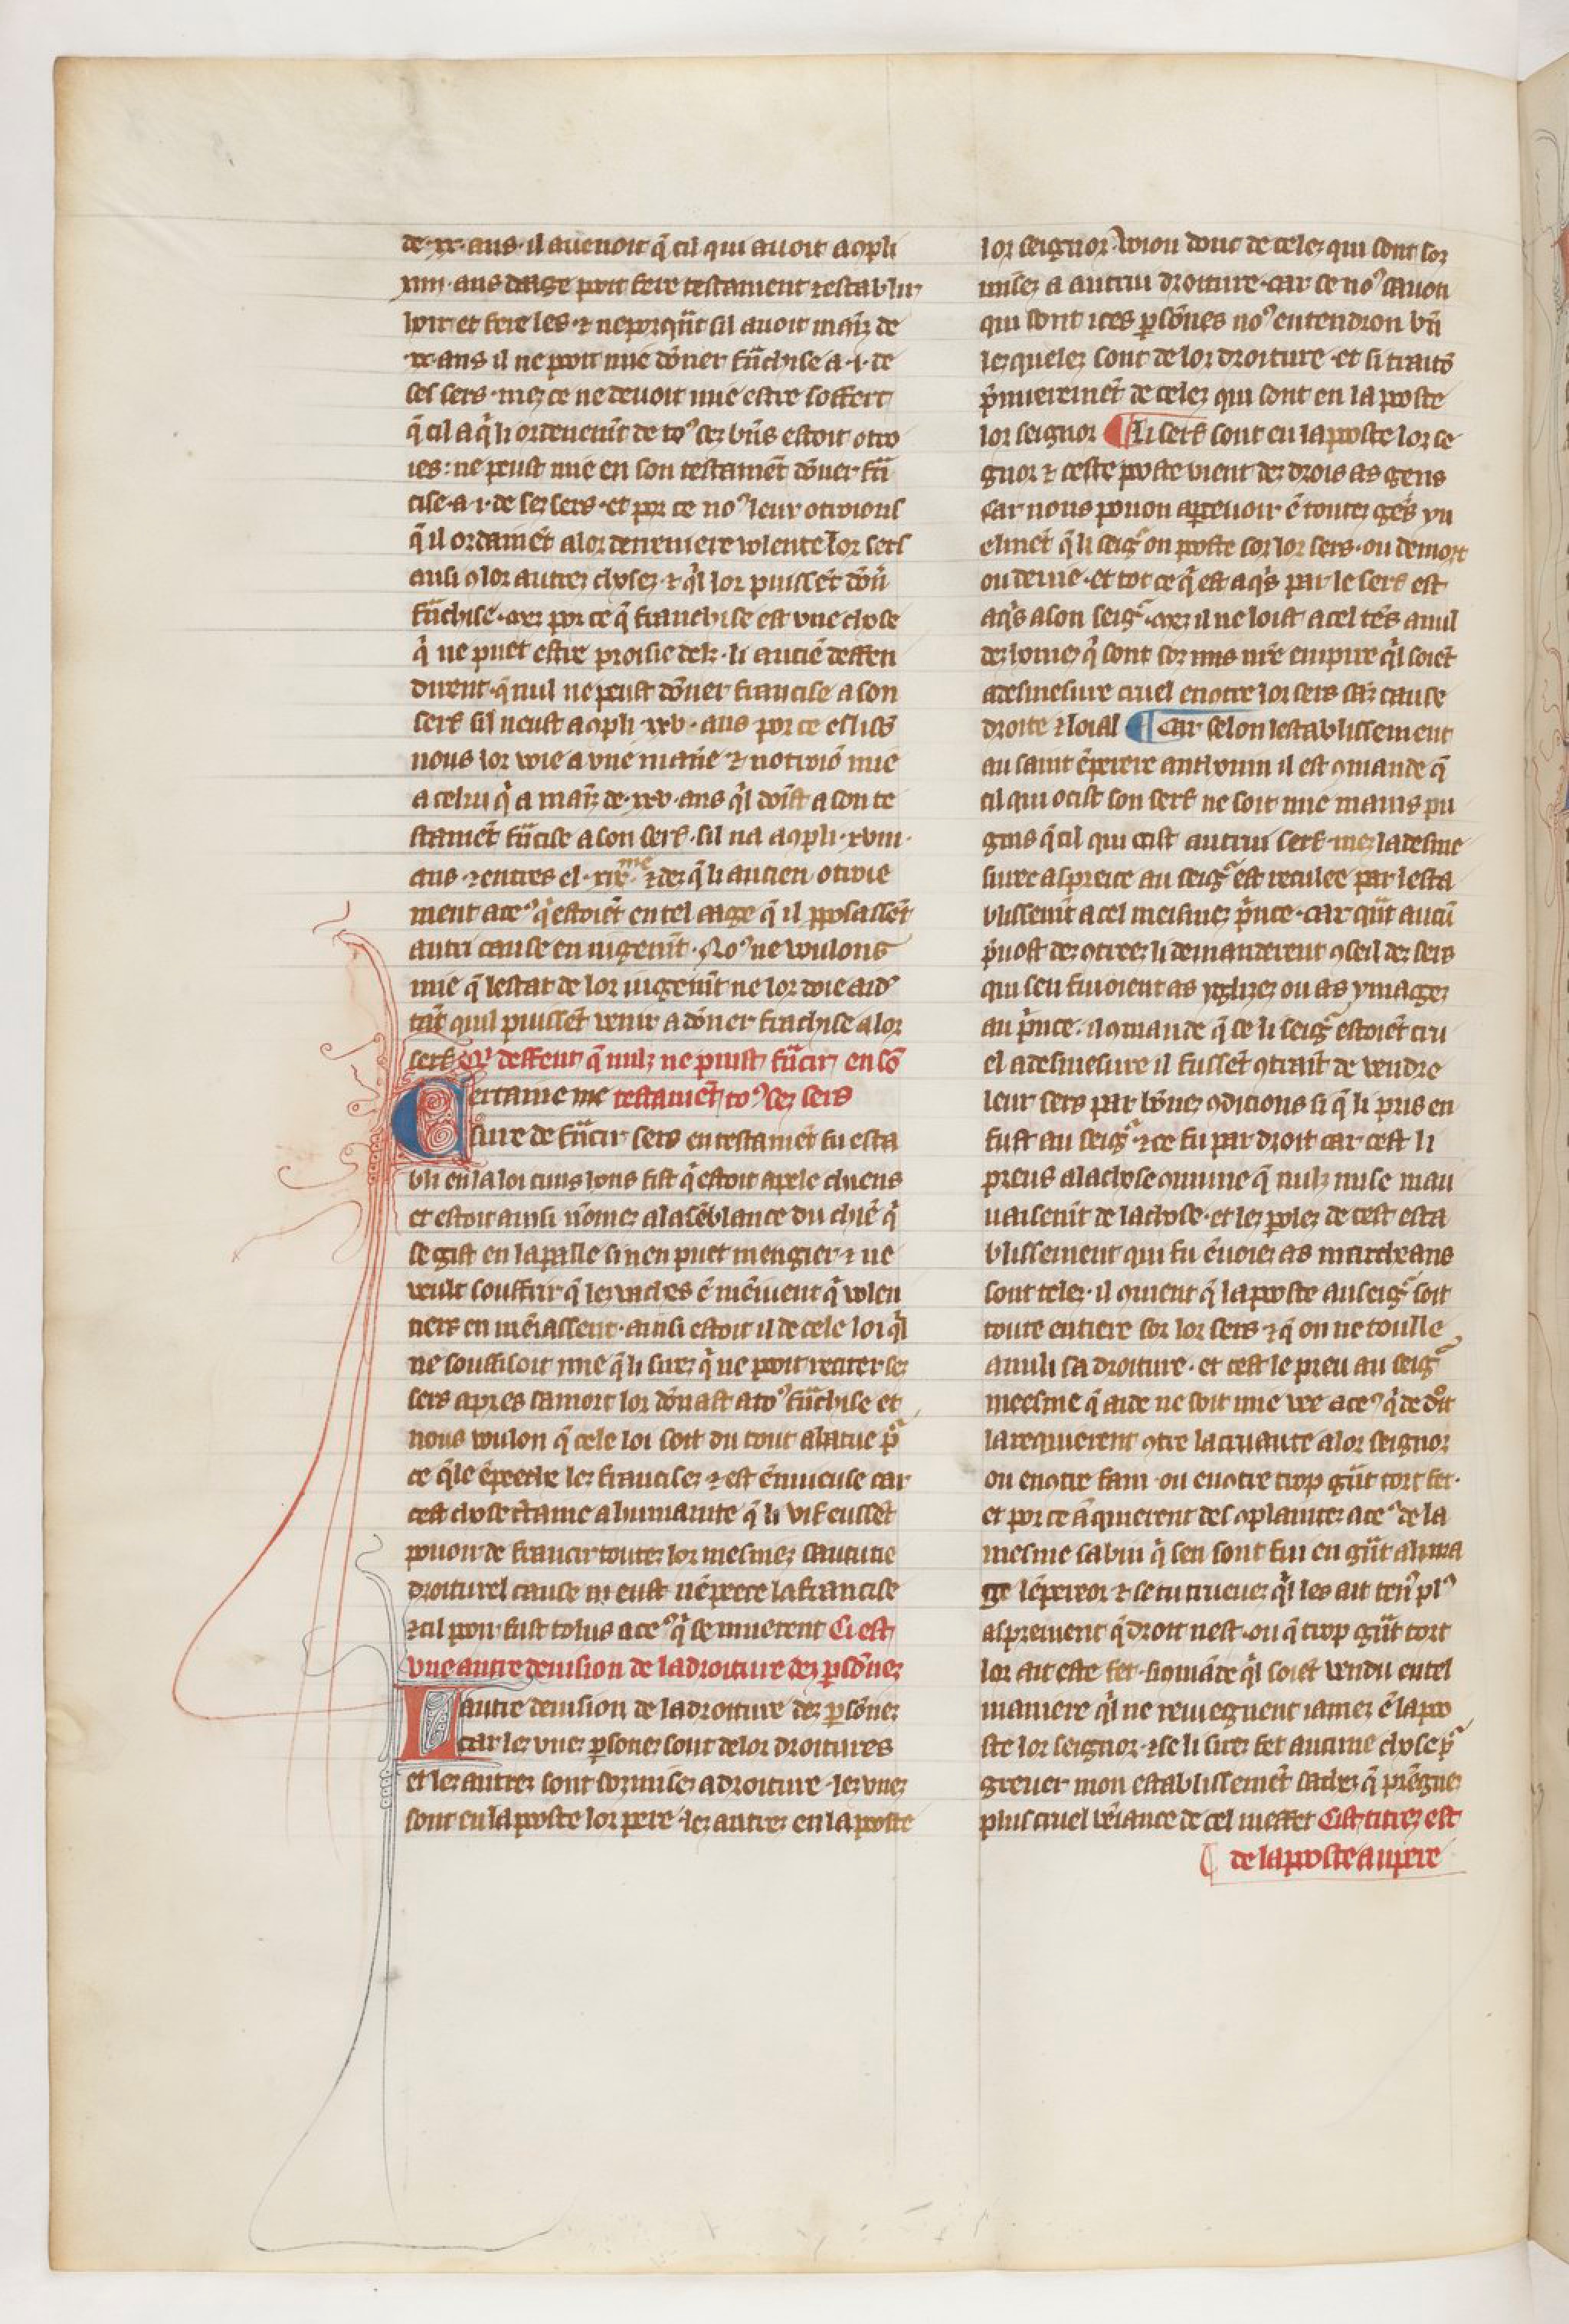 de .xx. ans. il auenoit q̃ cil qui auoit acpli
xiiii. ans daage poit fere testament ⁊ establir
hoir et fere les. ⁊ neporqũt sil auoit mains de
xx. ans il ne poit mie doner fũchise a .i. de
ses sers. mez ce ne deuoit mie estre soffert
q̃ cil a q̃ li ordenemt̃ de toꝰ sez biens estoit otro
ies: ne peust mie en son testamẽt doner frã
cise. a .i. de sez sers. et por ce noꝰ leur otroions
q̃ il ordainẽt a lor derreniere volente lor sers
ausi 9 lor autrez chosez. ⁊ q̃l lor puissẽt doñ
fũchise. mez por ce q̃ franchise est vne chose
q̃ ne puet estre proisie del̃z. li anciẽ deffen
dirent. q̃ nul ne peust doñer francise a son
serf sil neust acpli .xxv. ans por ce eslisõ
nous lor voie a vne mañie ⁊ notroiõ mie
a celui q̃ a mains de .xxv. ans q̃l doĩst a son te
stamẽt fũcise a son serf. sil na acpli .xviii.
ans ⁊ entres el .xixme. ⁊ dez q̃ li ancien otroie
ment a ceꝰ q̃ estoiẽt en tel aage q̃ il pposassẽt
autri cause en iugemt̃. Noꝰ ne voulons
mie q̃ lestat de lor iugemt̃ ne lor doie aidꝰ
tãt quil puissẽt venir a doner frãchise a lor
serf Cꝰ deffent q̃ nulz ne puist fũcir en sõ
Certaine me testamẽt toꝰ sez sers
sure de fũcir sers en testamẽt fu esta
bli en la loi cuis ions fist q̃ estoit apele chiens
et estoit ainsi nõmez a la sẽblance du chiẽ q̃
se gist en la paille si nen puet mengier ⁊ ne
veult souffrir q̃ lez vaches ẽ mẽiuent q̃ volen
tiers en mẽiassent. ainsi estoit il de cele loi q̃l
ne souffisoit mie q̃ li sirez q̃ ne poit reciter sez
sers apres sa mort lor donast a toꝰ fũchise et
nous voulon q̃ cele loi soit du tout abatue p̃
ce q̃le ẽpeeche lez francisez ⁊ est ẽnuieuse car
cest chose 9traine a humanite q̃ li vif eussẽt
pouoir de francir toutez lor mesniez saututie
droiturel cause ni eust nẽpeece la francise
⁊ cil poir fust tolus a ceꝰ q̃ se muerent Ci est
vne autre deuision de la droiture dez psõnez
Lautre deuision de la droiture dez psõnez
car lez vnez psonez sont de lor droitures
et lez autrez sont sozmisez a droiture. lez vnez
sont en la poste lor pere. lez autrez en la poste
lor seignor. voion dont de celez qui sont soz
misez a autrui droiture. car se noꝰ sauon
qui sont ices psõnes noꝰ entendron bñ
lezquelez sont de lor droiture. et si traitõ
p̃mieremẽt de celez qui sont en la poste
lor seignor ¶ Li serf sont en la poste lor se
gnor ⁊ ceste poste vient dez drois as gens
car nous pouon aperceuoir ẽ toutez gẽs yu
elmẽt q̃ li seig̃r on poste sor lor sers. ou de mort
ou de vie. et tot ce q̃ est aq̃s par le serf est
aq̃s a son seig̃r. mez il ne loist a cel tẽs a nul
dez homez q̃ sont soz mis nr̃e empire q̃l soiẽt
a desmesure cruel encotre lor sers sãz cause
droite ⁊ loial ¶ Car selon lestablissement
au saint ẽpereire anthonin il est 9mande q̃
cil qui ocist son serf ne soit mie mains pu
gnis q̃ cil qui ocist autrui serf. mez la desme
suree aspreice au seig̃r est reculee par lesta
blissemt̃ a cel meismez p̃nce. car qũt aucũ
p̃uost dez 9treez li demanderent 9seil dez sers
qui sen fuioient as yglizez ou as ymagez
au p̃nce. il 9mande q̃ ce li seig̃r estoiẽt cru
el a desmesure il fussẽt 9traĩt de vendre
leur sers par bõnez 9dicions si q̃ li pris en
fust au seig̃r. ⁊ ce fu par droit car cest li
preus a la chose 9mune q̃ nulz nuse mau
uaisemt̃ de la chose. et lez polez de cest esta
blissement qui fu ẽuoiez as marcheans
sont telez. il 9uient q̃ la poste au seig̃r soit
toute entiere sor lor sers ⁊ q̃ on ne toulle
a nuli sa droiture. et cest le preu au seig̃r
meesme q̃ aide ne soit mie vee a ceꝰ q̃ de dõit
la requierent 9tre la cruaute a lor seignor
ou en9tre fam ou en9tre trop gũt tort fet.
et por ce ãquierent des 9plaintez a ceꝰ de la
mesme sabin q̃ sen sont fui en gũt ahura
ge lẽpereor ⁊ se tu trueuez q̃l les ait tenꝰ plꝰ
asprement q̃ droit nest. ou q̃ trop gũt tort
lor ait este fet. si 9mãde q̃l soiẽt vendu en tel
maniere q̃l ne reuiegnent iamez ẽ la po
ste lor seignor. ⁊ se li sirez fet aucune chose p̃
greuer mon establissemẽt sachez q̃ prẽgnez
plus cruel vẽiance de cel meffet Cist titrez est
¶ de la poste au pere